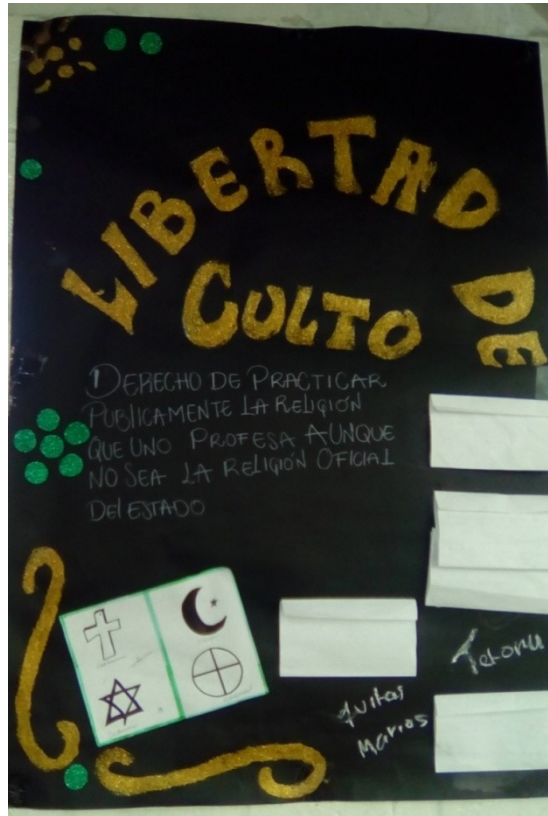 LIBERTAD DE
CULTO
DERECHO DE PRACTICAR
PUBLICAMENTE LA RELIGIÓN
QUE UNO PROFESA AUNQUE
NO SEA LA RELIGIÓN OFICIAL
DEL ESTADO
Marios